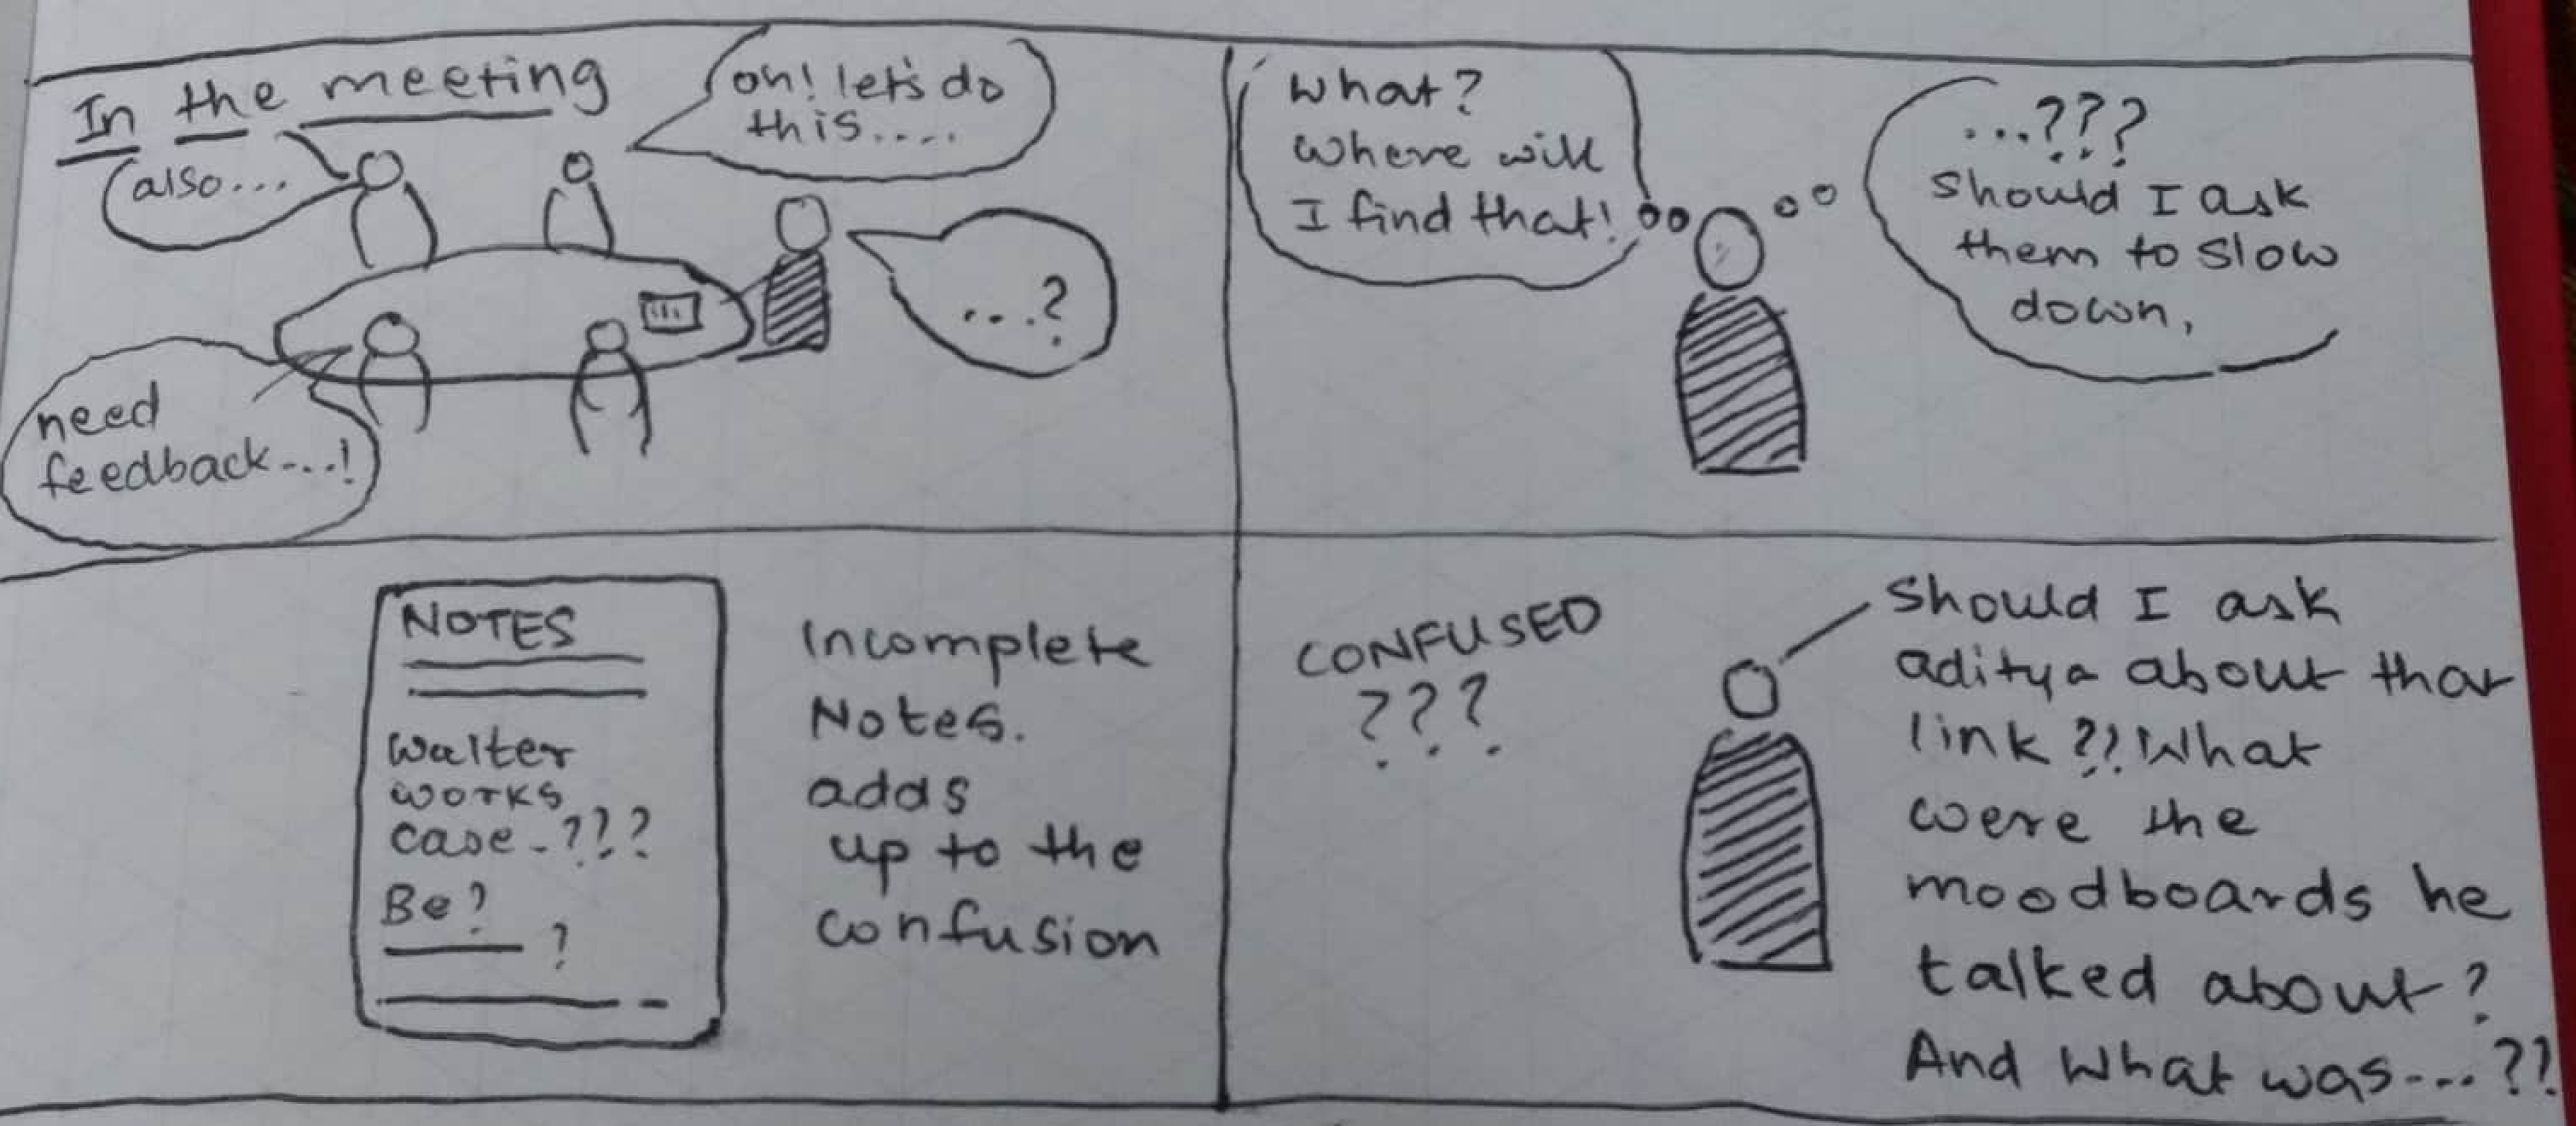 In the meeting
also...
oh! let's do
this....
...?
need
feedback....!
What?
Where will
I find that!
...???
Should I ask
them to slow
down,
NOTES
Walter
works
case.???
Be?
?
Incomplete
Notes.
adds
up to the
confusion
CONFUSED
???
Should I ask
aditya about that
link?? What
were the
moodboards he
talked about?
And What was....??